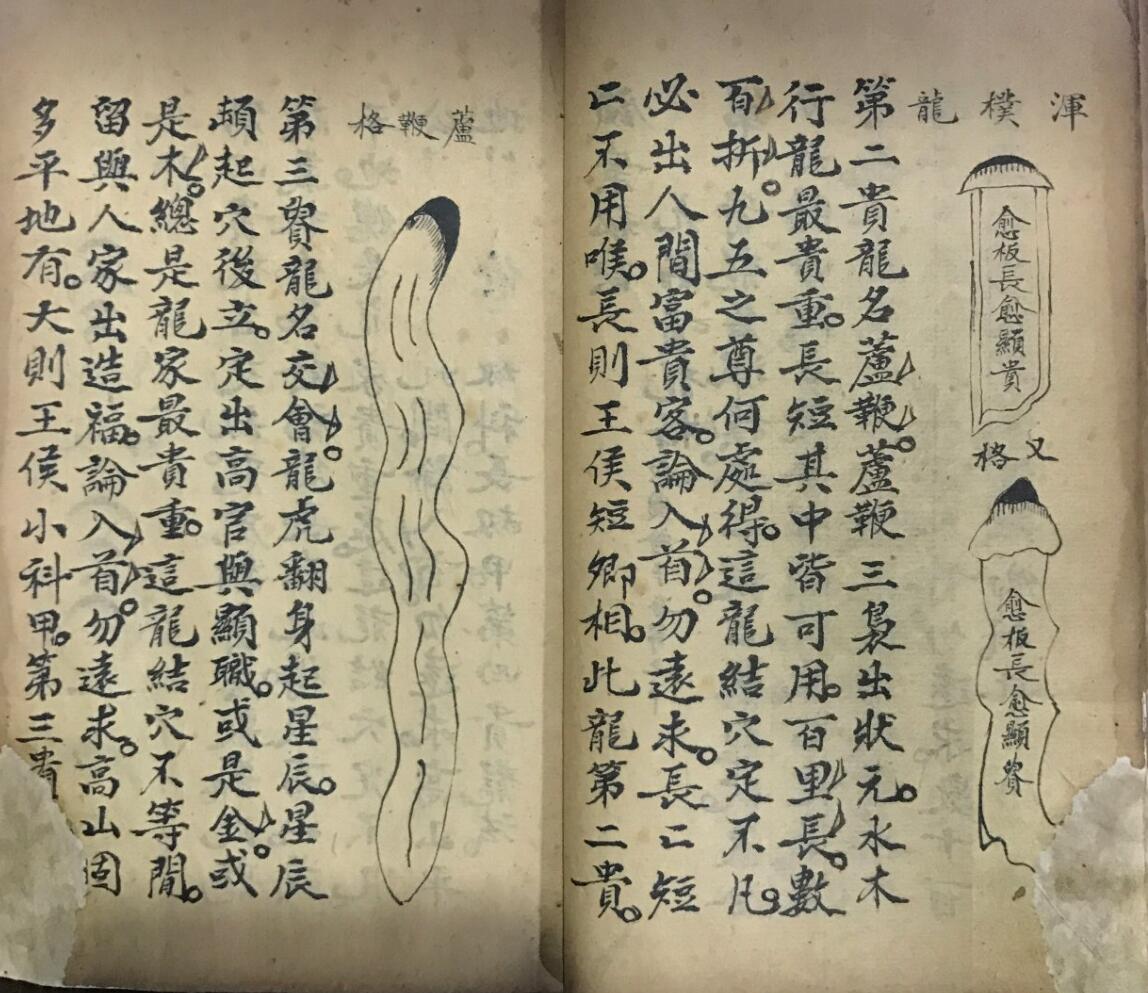 渾樸龍
愈板長愈顯貴
又格
愈板長愈顯貴
第二貴龍名蘆鞭。蘆鞭三裊出狀元。水木
行龍最貴重。長短其中皆可用。百里長。數
百折。九五之尊何處得。這龍結穴定不凡。
必出人間富貴客。論入首。勿遠求。長亡短
亡不用喉。長則王侯短卿相。此龍第二貴。
蘆鞭格
第三貴龍名交會。龍虎翻身起星辰。星辰
頓起穴後立。定出高官與顯職。或是金。或
是木。總是龍家最貴重。這龍結穴不等閒。
留與人家出造福。論入首。勿遠求。高山固
多平地有。大則王侯小科甲。第三貴